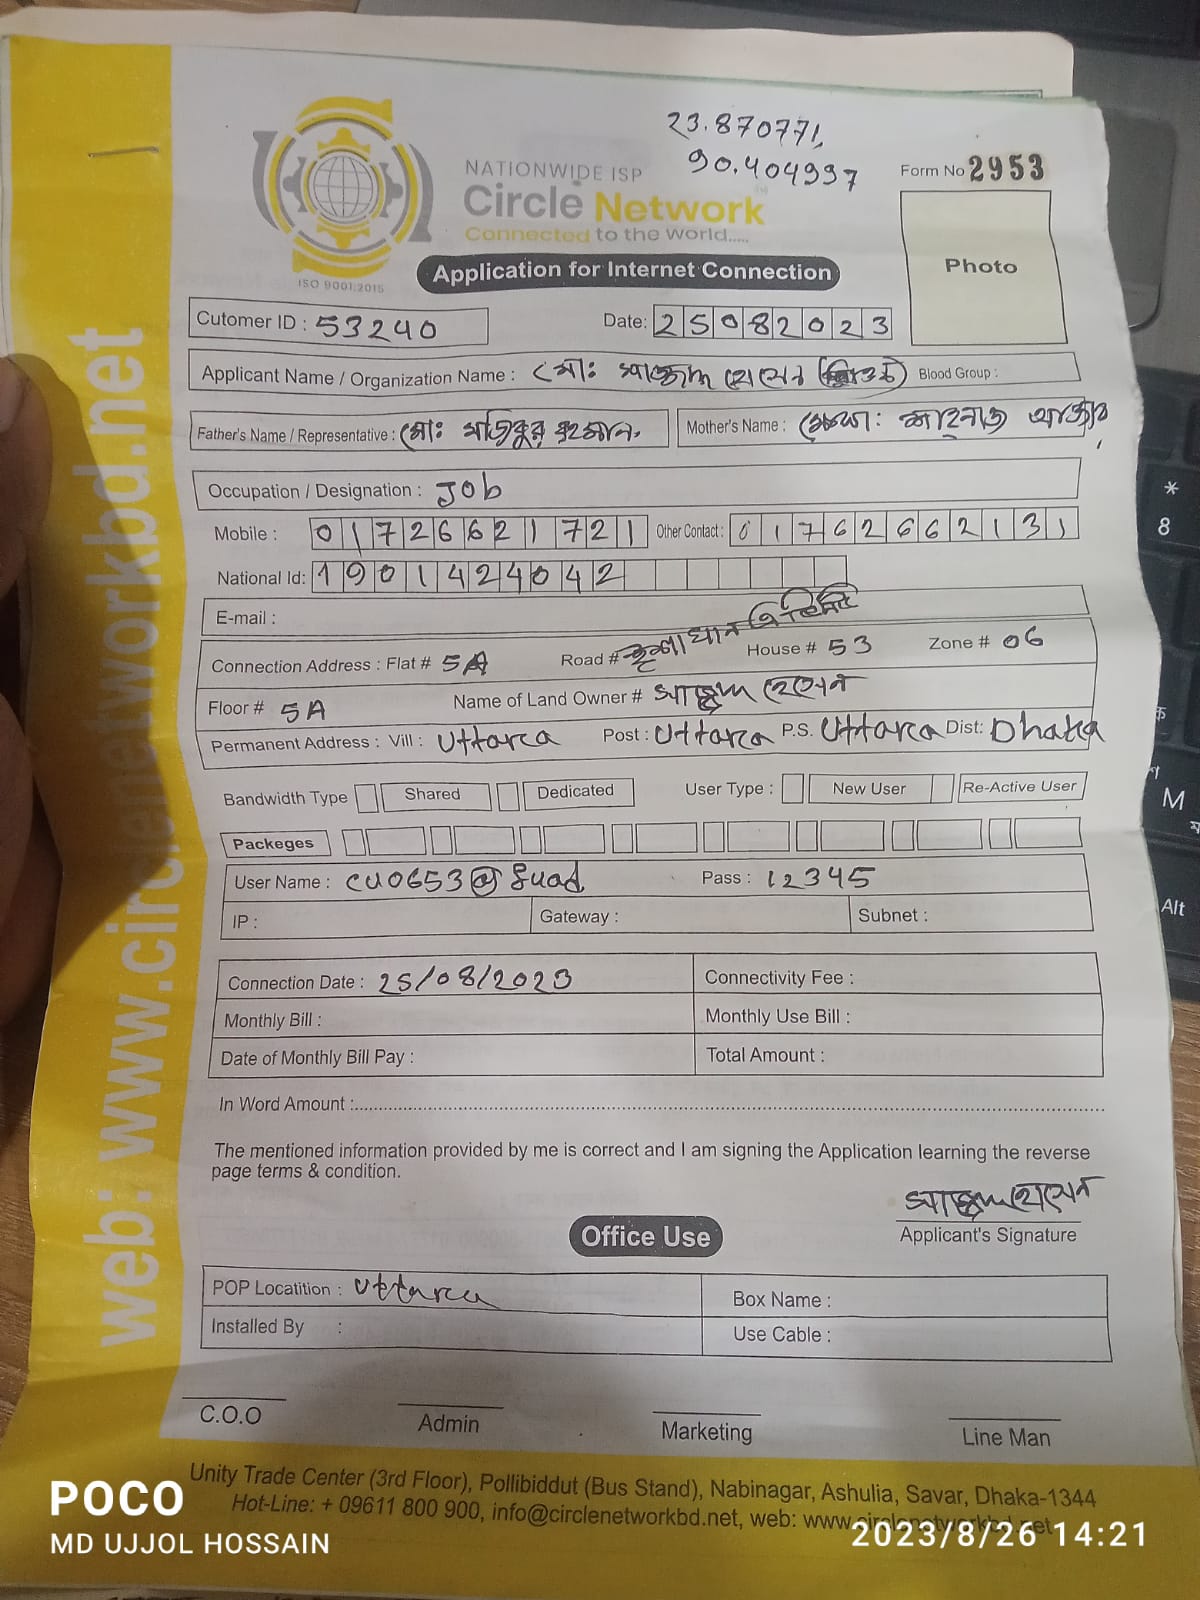 23.870771,
90.404997
Form No 2953
NATIONWIDE ISP
Circle Network
Connected to the World.....
ISO 9001:2015
Application for Internet Connection
Photo
Cutomer ID : 53240 Date: 25082023
Applicant Name / Organization Name : মোঃ হোসেন Blood Group :
Father's Name / Representative : মোঃ রহমান Mother's Name :
Occupation / Designation : Job
Mobile : 01726621721 Other Contact : 01762662131
National Id: 1901424042
E-mail :
Connection Address : Flat # 5A Road # House # 53 Zone # 06
Floor # 5A Name of Land Owner # হোসেন
Permanent Address : Vill : Uttara Post : Uttara P.S. Uttara Dist: Dhaka
Bandwidth Type Shared Dedicated User Type : New User Re-Active User
Packeges
User Name : CU0653@fuad Pass : 12345
IP : Gateway : Subnet :
Connection Date : 25/08/2023 Connectivity Fee :
Monthly Bill : Monthly Use Bill :
Date of Monthly Bill Pay : Total Amount :
In Word Amount :
The mentioned information provided by me is correct and I am signing the Application learning the reverse
page terms & condition.
হোসেন
Applicant's Signature
Office Use
POP Locatition : Uttara Box Name :
Installed By : Use Cable :
C.O.O Admin Marketing Line Man
Unity Trade Center (3rd Floor), Pollibiddut (Bus Stand), Nabinagar, Ashulia, Savar, Dhaka-1344
Hot-Line: + 09611 800 900, info@circlenetworkbd.net, web: www.circlenetworkbd.net
web: www.circlenetworkbd.net
POCO
MD UJJOL HOSSAIN
2023/8/26 14:21
*
8
M
Alt